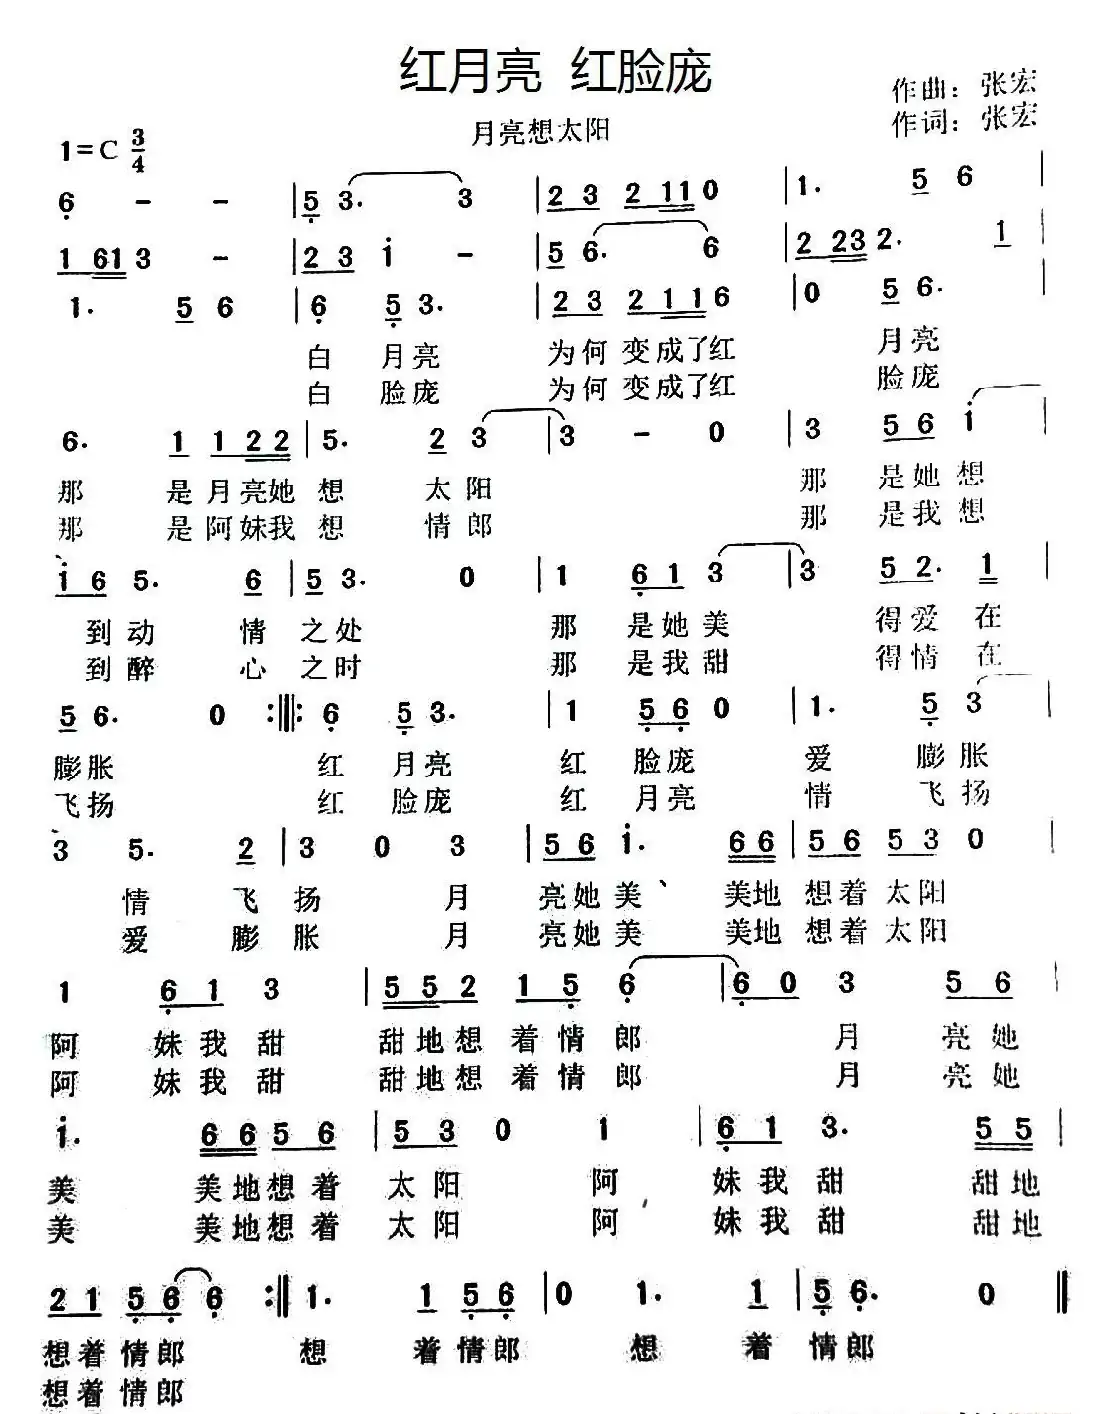 红月亮 红脸庞
作曲：张宏
月亮想太阳
作词：张宏
1=C 3/4
6 - - | 5 3. 3 | 2 3 2 1 1 0 | 1. 5 6 |
1 6 1 3 - | 2 3 i - | 5 6. 6 | 2 2 3 2. 1 |
1. 5 6 | 6 5 3. | 2 3 2 1 1 6 | 0 5 6. |
白 月亮 为何 变成了红 月亮
白 脸庞 为何 变成了红 脸庞
6. 1 1 2 2 | 5. 2 3 | 3 - 0 | 3 5 6 i |
那 是月亮她 想 太阳 那 是她想
那 是阿妹我 想 情郎 那 是我想
i 6 5. 6 | 5 3. 0 | 1 6 1 3 | 3 5 2. 1 |
到动 情 之处 那 是她美 得爱在
到醉 心 之时 那 是我甜 得情在
5 6. 0 :||: 6 5 3. | 1 5 6 0 | 1. 5 3 |
膨胀 红 月亮 红 脸庞 爱 膨胀
飞扬 红 脸庞 红 月亮 情 飞扬
3 5. 2 | 3 0 3 | 5 6 i. 6 6 | 5 6 5 3 0 |
情 飞 扬 月 亮她美 美地 想着太阳
爱 膨 胀 月 亮她美 美地 想着太阳
1 6 1 3 | 5 5 2 1 5 6 | 6 0 3 5 6 |
阿 妹我甜 甜地想 着情郎 月 亮她
阿 妹我甜 甜地想 着情郎 月 亮她
i. 6 6 5 6 | 5 3 0 1 | 6 1 3. 5 5 |
美 美地想着 太阳 阿 妹我甜 甜地
美 美地想着 太阳 阿 妹我甜 甜地
2 1 5 6 6 :|| 1. 1 5 6 | 0 1. 1 | 5 6. 0 ‖
想着情郎 想 着情郎 想 着情郎
想着情郎